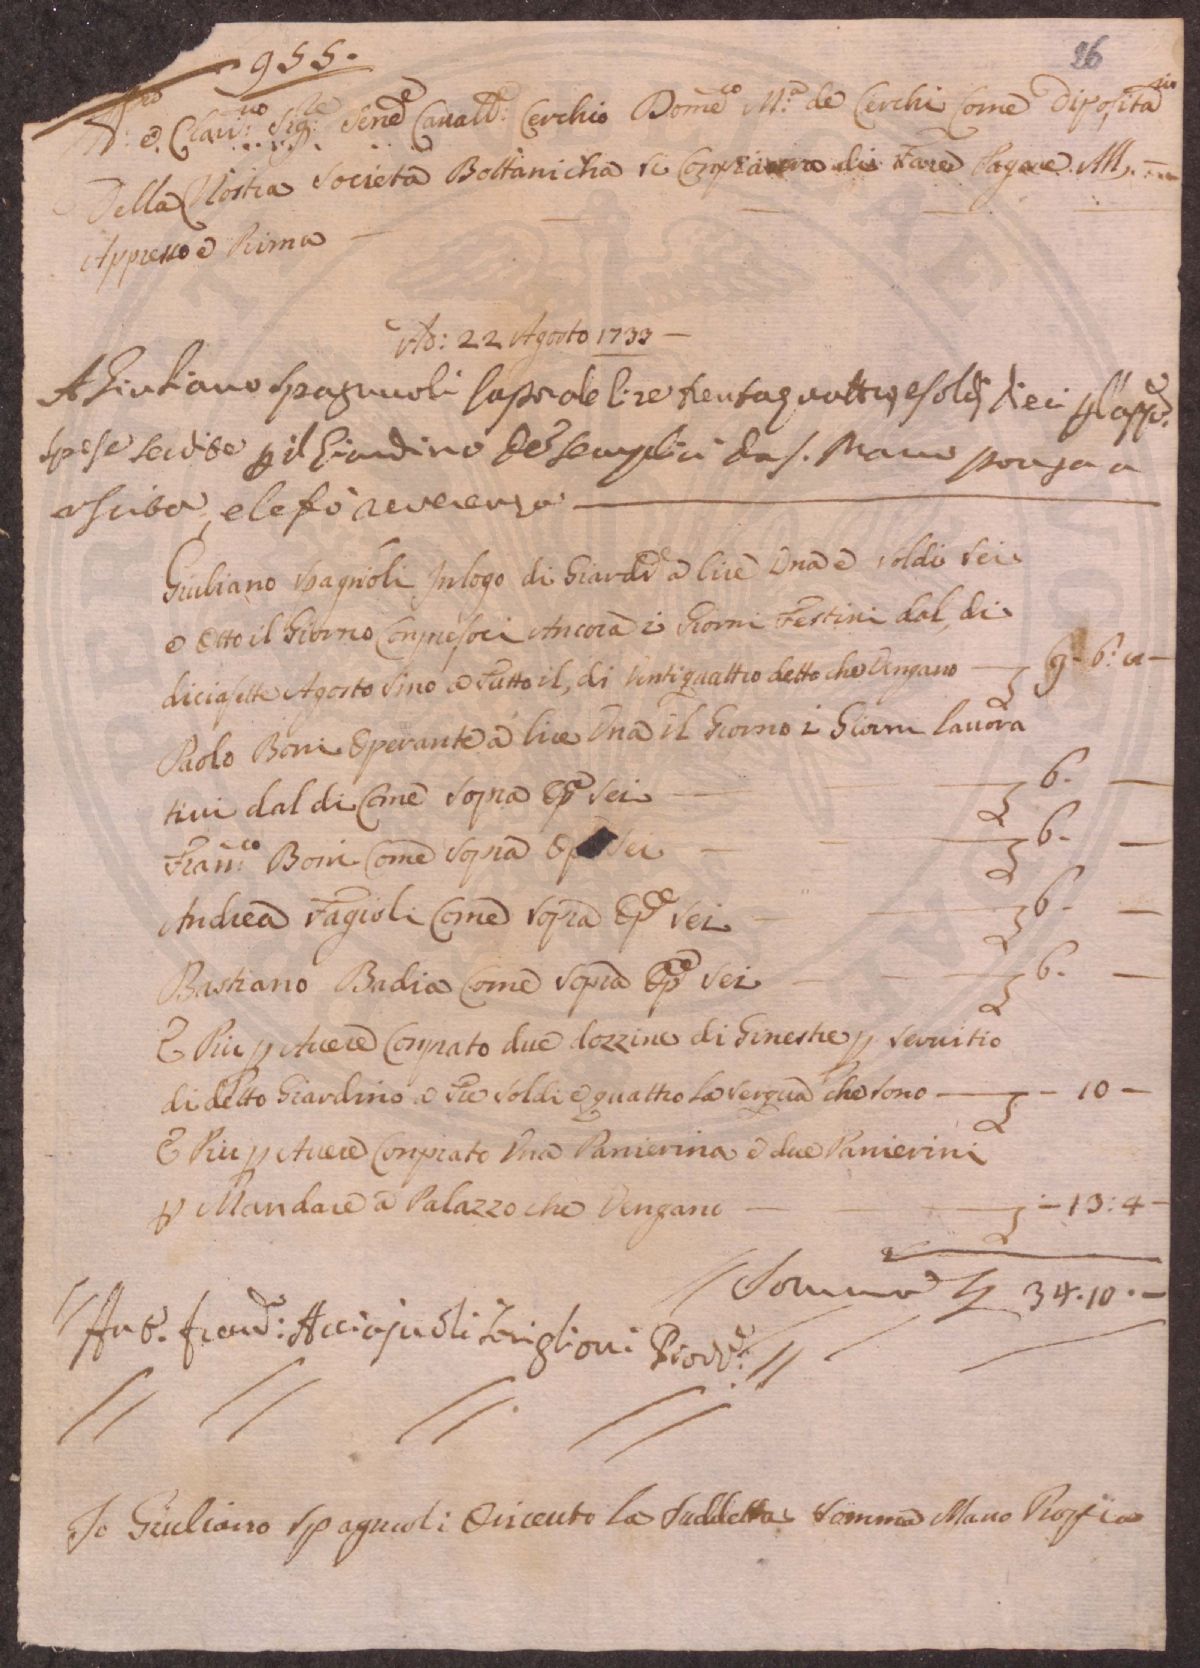 955.
26
e Clarmo Sigre Sene Cavalre Cerchio Domeco Ma de Cerchi Come Diposita rio
Della Nostra Societa Bottanicha si Conpiacera di Fare Pagare All
Appresso e Prima
Ad: 22 Agosto 1733
A Giuliano Spagnuoli lire trentaquattro e soldi dieci p l'appo
spese seruite p il Giardino de Semplici da S. Marco ponga a
escita, e le fo reverenza
Giuliano Spagnioli In logo di Giardre a lire Una e soldi sei
e Otto il Giorno Conpresoci Ancora i Giorni Festivi dal, di
diciasette Agosto Sino e Tutto il, di Ventiquattro detto che Vengano 9. 6. 8
Paolo Boni Operante a lire Una il Giorno i Giorni lavora
tivi dal di Come Sopra Ope sei 6.
Franco Boni Come Sopra Ope Sei 6.
Andrea Fagioli Come Sopra Ope Sei 6.
Bastiano Badia Come Sopra Ope Sei 6.
E Piu p Avere Conprato due dozzine di Ginestre p servitio
di detto Giardino a Tre Soldi e quattro La Serqua che sono 10
E Piu p Avere Conprato Una Panierina e due Panierini
p Mandare a Palazzo che Vengano 13:4
Somma 34.10.
Ant. Franco: Acciajuoli Toriglioni Provre
Io Giuliano Spagnuoli O riceuto La Suddetta Somma Mano Propia